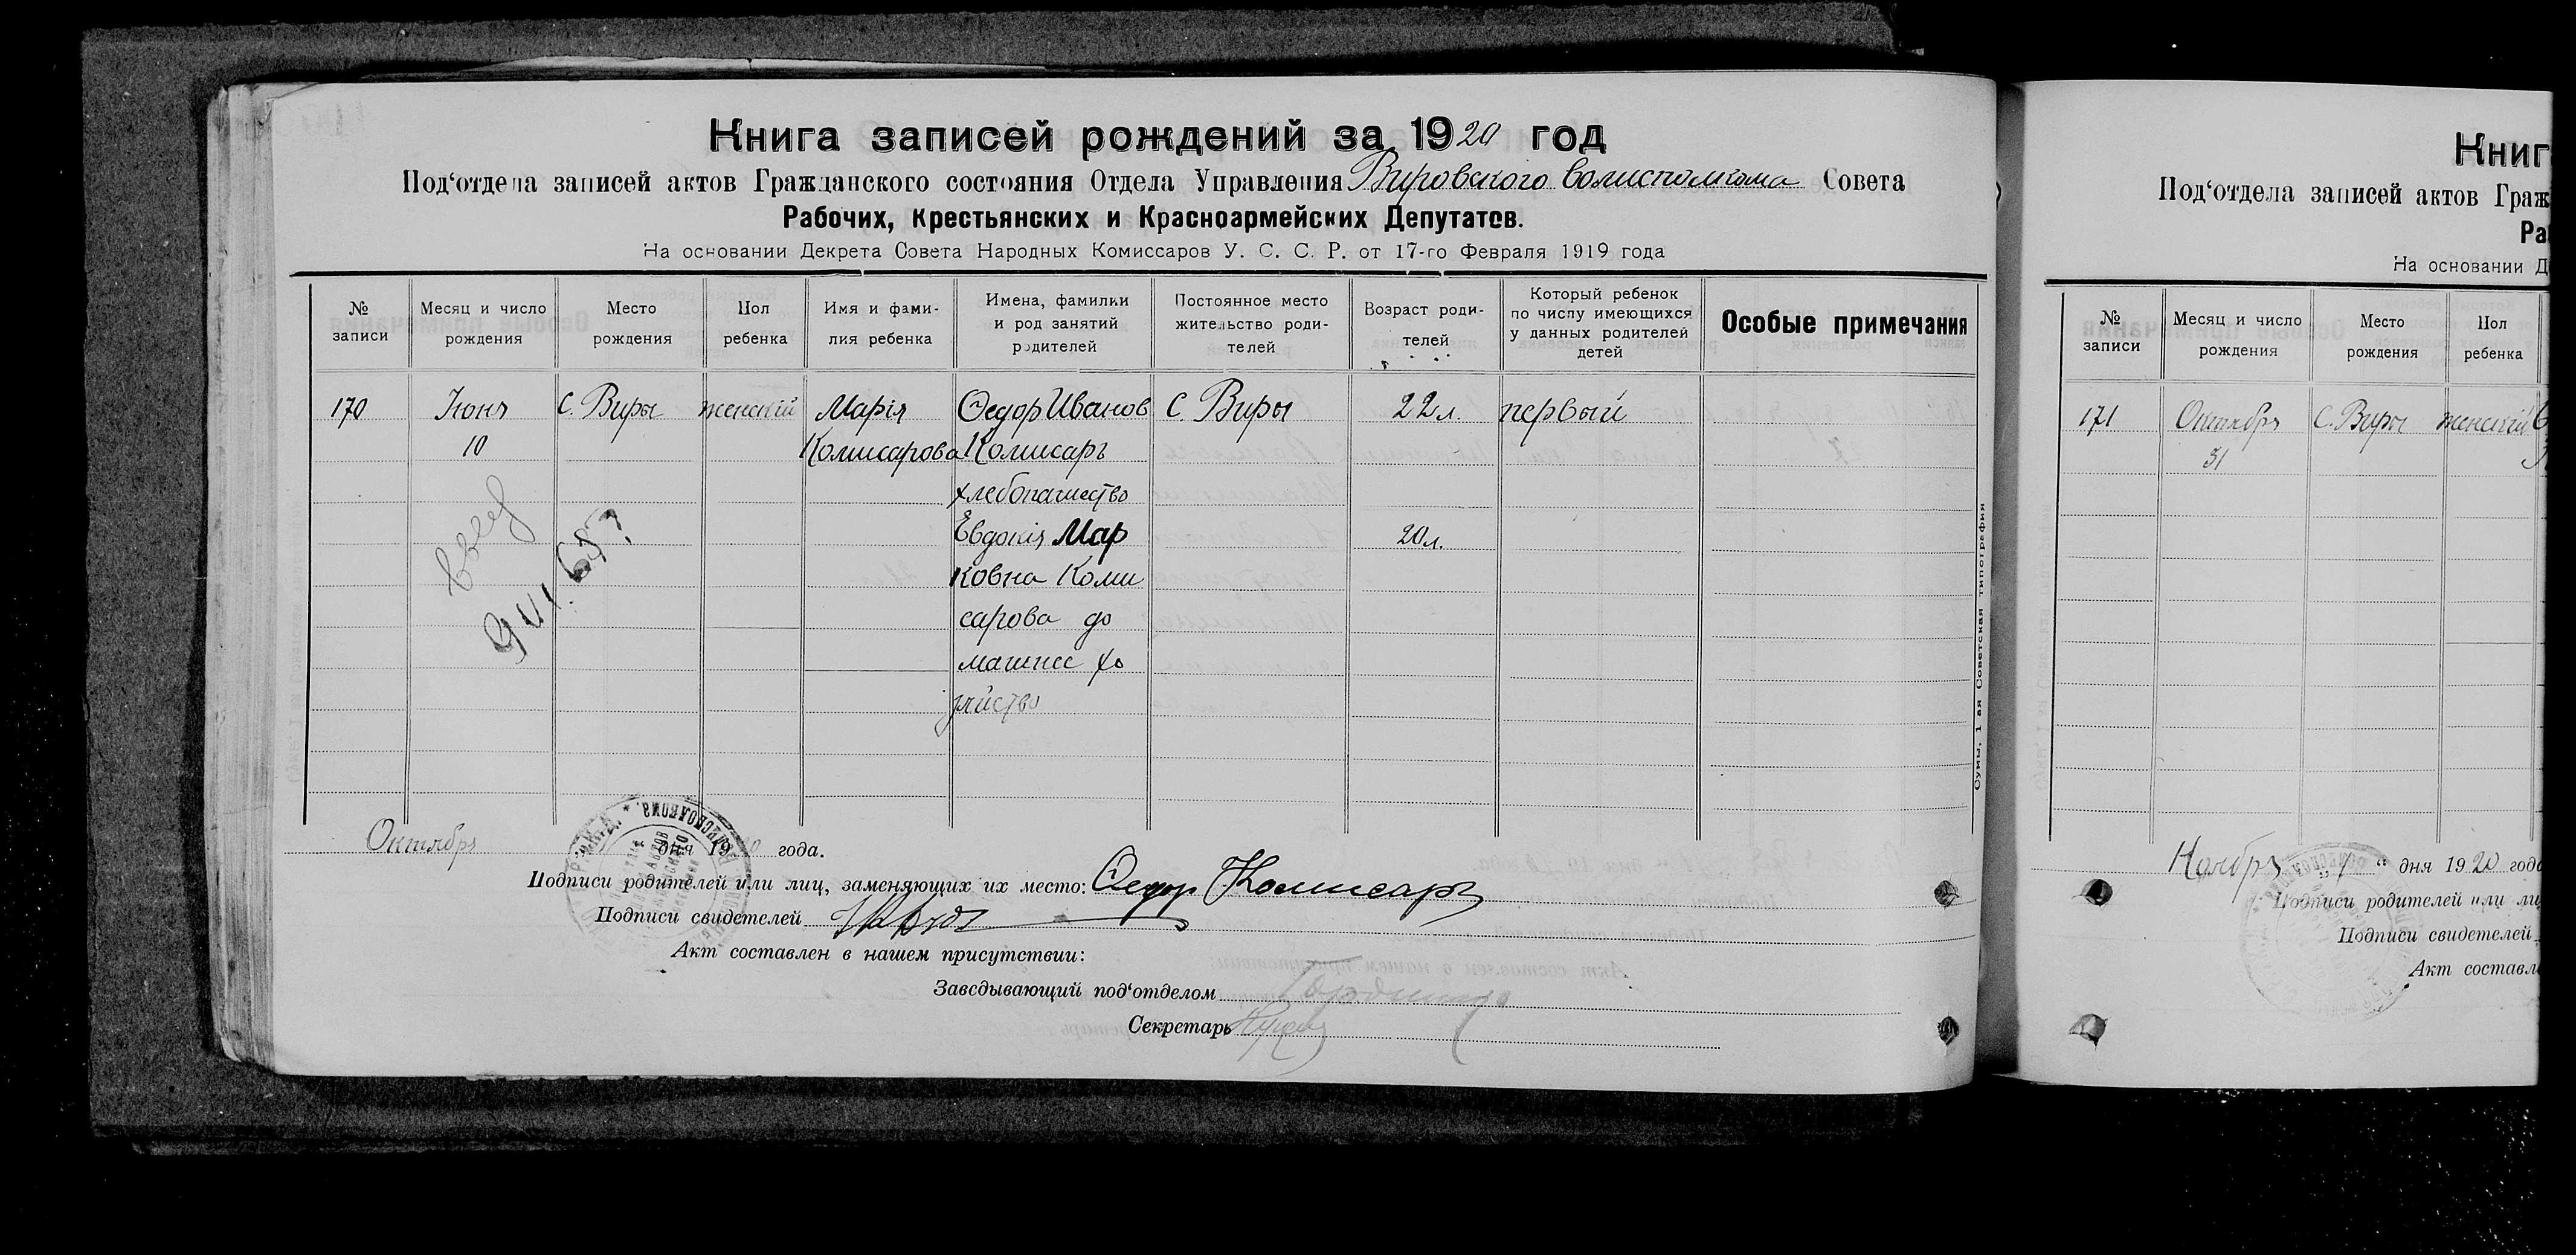 Книга записей рождений за 1920 год
Под‘отдела записей актов Гражданского состояния Отдела Управления Вировского Волисполкома Совета
Рабочих, Крестьянских и Красноармейских Депутатов.
На основании Декрета Совета Народных Комиссаров У. С. С. Р. от 17-го Февраля 1919 года
№ записи
Месяц и число рождения
Место рождения
Пол ребенка
Имя и фами-
лия ребенка
Имена, фамилии
и род занятий
родителей
Постоянное место
жительство роди-
телей
Возраст роди-
телей
Который ребенок
по числу имеющихся
у данных родителей
детей
Особые примечания
170
Июня
10
С. Виры
женский
Марія
Комисарова
Ѳедор Иванов
Комисаръ
хлебопашество
Евдокія Мар
ковна Коми
сарова до
машнее хо
зяйство
С. Виры
22 л.
20 л.
первый
Сумы, 1 ая Советская типография
Октября дня 1920 года.
Подписи родителей или лиц, заменяющих их место: Ѳедор Комисаръ
Подписи свидетелей
Акт составлен в нашем присутствии:
Заведывающий под‘отделом
Секретарь
Книг
Под‘отдела записей актов Граж
Ра
На основании Д
№ записи
Месяц и число рождения
Место рождения
Пол ребенка
171
Октября
31
С. Виры
женский
Ноября „1“ дня 1920 года
Подписи родителей или ли
Подписи свидетелей
Акт составл